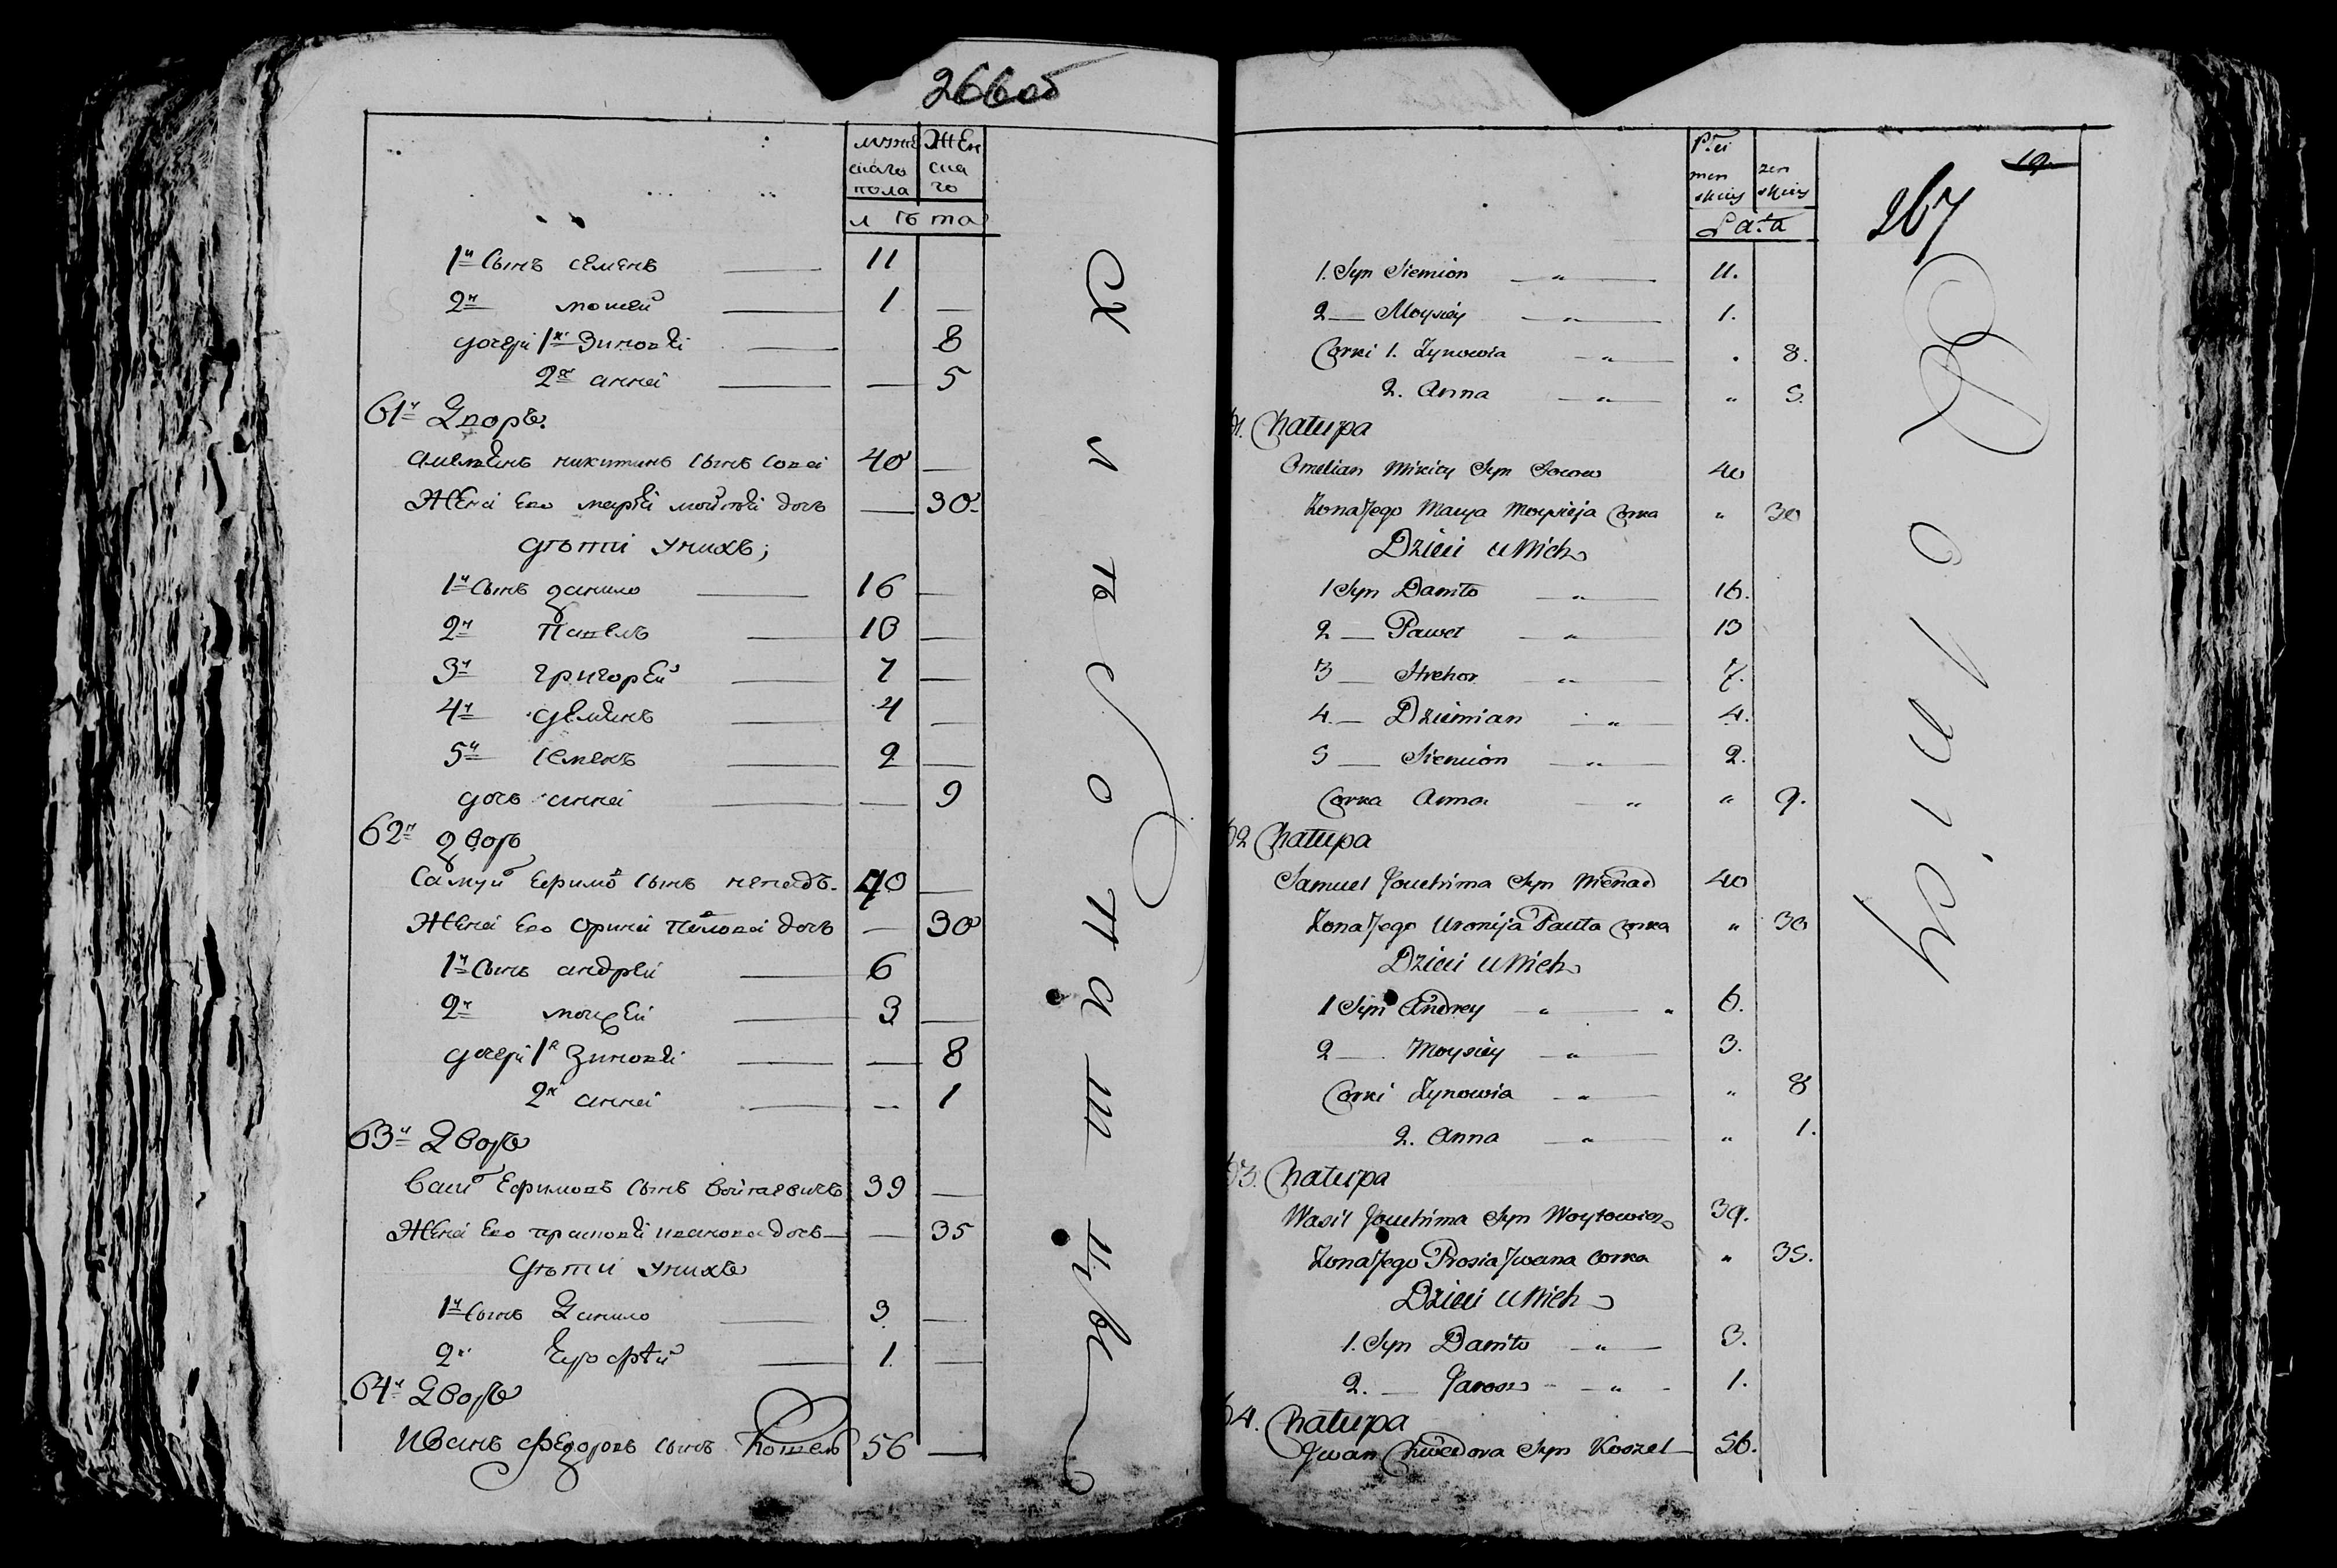 266об
мужескаго пола
Женскаго
лѣта
1й Сынъ семенъ 11
2й мошей 1 —
дочери 1я Зиновѣ 8
2я анна — 5
61й Дворъ.
амельянъ никитинъ сынъ сова 40 —
Жена Его марья мойсея дочь — 30
дѣти унихъ;
1й Сынъ данило 16 —
2й Павелъ 10 —
3й григорей 7 —
4й демьянъ 4 —
5й семенъ 2 —
дочь анна — 9
62й дворъ
Самуй Ефимов сынъ ненадъ. 40 —
Жена Его орина Павлова дочь — 30
1й Сынъ андрей 6
2й мойсей 3 —
дочери 1я Зиновѣ — 8
2я анна — 1
63й Дворъ
Васил Ефимовъ сынъ войтевичъ 39 —
Жена Его прасковѣ иванова дочь — 35
Дѣти унихъ
1й Сынъ Данило 3 —
2й Ерофѣй 1 —
64й Дворъ
Иванъ Федоровъ сынъ Кошель 56 —
Płci
men skiey
zen skiey
Lata
19
267
1. Syn Siemion 11.
2 — Moysiey 1.
Corki 1. Zynowia 8.
2. Anna 5.
Chatupa
Omelian Mikity Syn Sowa 40
Zona Jego Marya Moysieja Corka 30
Dzieci u Nich
1 Syn Daniło 16.
2 — Paweł 10
3 — Hrehor 7.
4. — Dziemian 4.
5 — Siemion 2.
Corka Anna 9.
62 Chatupa
Samuel Jouchima Syn Nienad 40
Zona Jego Uronija Pauła Corka 30
Dzieci u Nich
1 Syn Andrey 6.
2 — Moysiey 3.
Corki Zynowia 8
2. Anna 1.
63. Chatupa
Wasil Jouchima Syn Woytowicz 39.
Zona Jego Prosia Jwana Corka 35.
Dzieci u Nich
1. Syn Daniło 3.
2. — Jarosz 1.
64. Chatupa
Jwan Chwedora Syn Koszel 56.